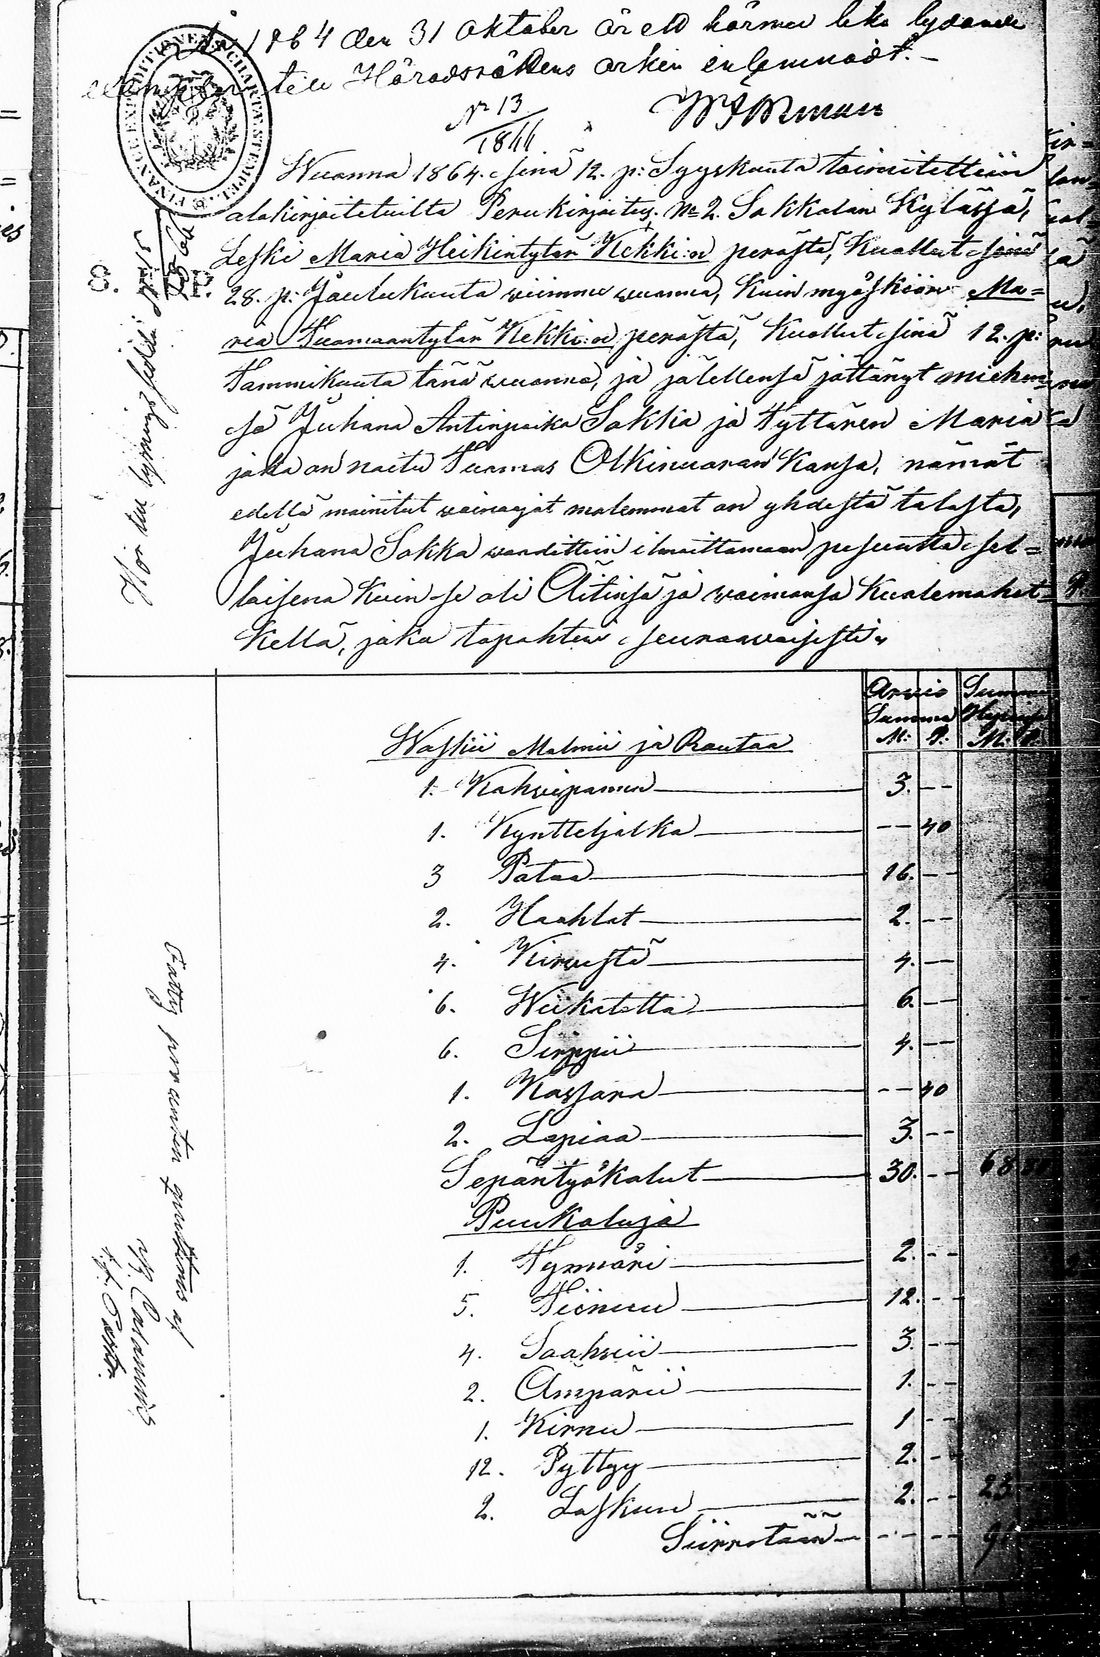 1864 den 31 Oktober är ett härmed lika lydande
till Häradsrättens arkiv inlemnadt.
No 13
1844
Wuonna 1864. sinä 12. p: Syyskuuta toimitettiin
alakirjoitetuilta Perukirjoitus No 2. Sakkalan Kylässä,
Leski Maria Heikintytär Kekki:n perästä, Kuollut sinä
28. p: Joulukuuta wiimme wuonna, Kuin myöskiin Ma=
ria Tuomaantytär Kekki:n perästä, Kuollut sinä 12. p:
Tammikuuta tänä wuonna, ja jälellensä jättänyt miehen=
sä Juhana Antinpoika Sakka ja Tyttären Maria
joka on naitu Tuomas Olkinuoran Kansa, nämät
edellä mainitut wainajat molemmat on yhdestä talosta,
Juhana Sakka waadittiin ilmoittamaan pesuutta sel=
laisena Kuin se oli Äitinsä ja waimonsa Kuolemahet=
Kellä, joka tapahtui seuraawaisesti.
S. P.
Arwio Summa
Summa
M: P: M: P.
Waskii Malmii ja Rautaa
1. Kahwipannu 3. --
1. Kyntteljalka -- 40
3 Pataa 16. --
2. Haahlat 2. --
4. Kirwestä 4. --
6. Wiikatetta 6. --
6. Sirppii 4. --
1. Kassara -- 40
2. Lapiaa 3. --
Sepäntyökalut 30. -- 68 80
Puukaluja
1. Tynnäri 2. --
5. Tiinuu 12. --
4. Saahwii 3. --
2. Ämpärii 1. --
1. Kirnu 1 --
12. Pyttyy 2. --
2. Laskun 2. -- 23
Siirretään
Fattig procenten qvitteras af